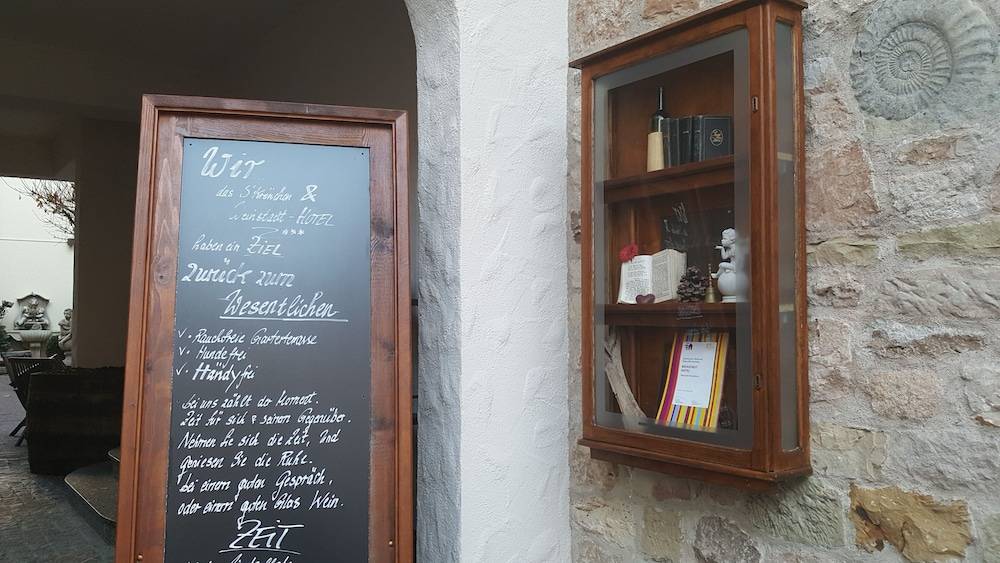 Wir
das &
Weinstadt-HOTEL
***
haben ein ZIEL
Zurück zum
Wesentlichen
✓ • Rauchfreie Gartenterrasse
✓ • Hundefrei
✓ • Händyfrei
bei uns zählt der Moment.
Zeit für sich & seinem Gegenüber.
Nehmen Sie sich die Zeit, und
geniesen Sie die Ruhe.
bei einem guten Gespräch,
oder einem guten Glas Wein.
ZEIT